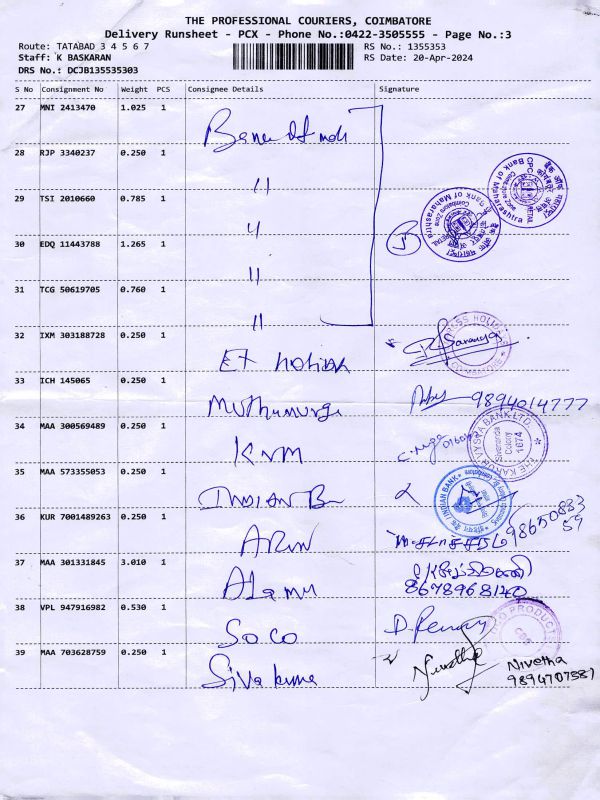 THE PROFESSIONAL COURIERS, COIMBATORE
Delivery Runsheet - PCX - Phone No.:0422-3505555 - Page No.:3
Route: TATABAD 3 4 5 6 7
RS No.: 1355353
Staff: K BASKARAN
RS Date: 20-Apr-2024
DRS No.: DCJB135535303
S No Consignment No Weight PCS Consignee Details Signature
27 MNI 2413470 1.025 1
28 RJP 3340237 0.250 1
"
29 TSI 2010660 0.785 1
"
30 EDQ 11443788 1.265 1
"
31 TCG 50619705 0.760 1
"
32 IXM 303188728 0.250 1
Saranya
33 ICH 145065 0.250 1
9894014777
34 MAA 300569489 0.250 1
KVM
THE KARUR VYSYA BANK LTD.
Sivananda
Colony
1674
35 MAA 573355053 0.250 1
INDIAN
INDIAN BANK
36 KUR 7001489263 0.250 1
ARUN
37 MAA 301331845 3.010 1
Alamu
8678968140
38 VPL 947916982 0.530 1
SOCO
39 MAA 703628759 0.250 1
Sivakuma
Nivetha
9894707581
Bank of Maharashtra
बैंक ऑफ महाराष्ट्र
Coimbatore Zone